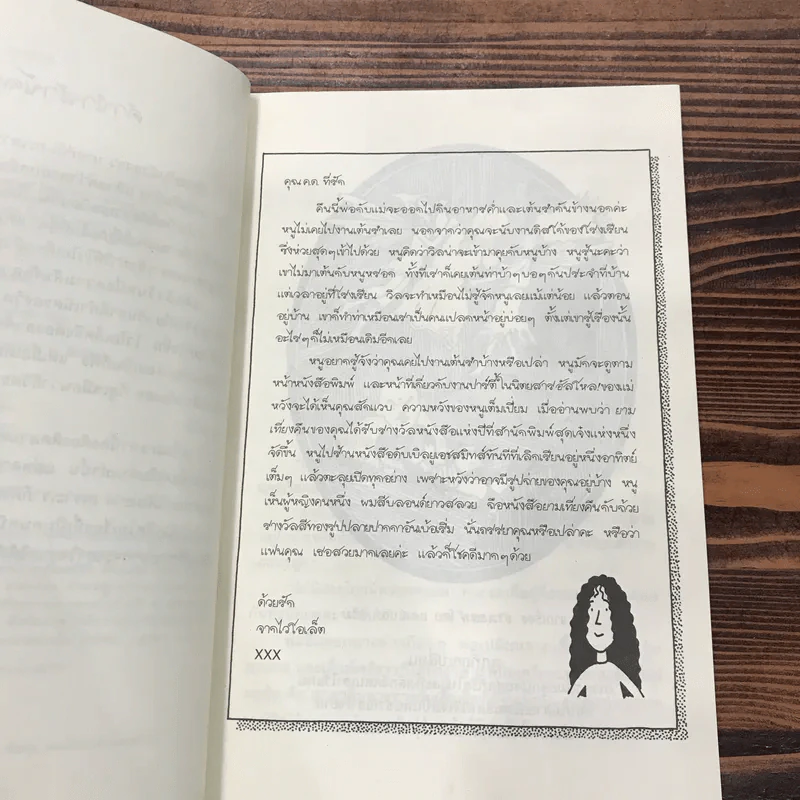 คุณ ค.ด. ที่รัก
คืนนี้พ่อกับแม่จะออกไปกินอาหารค่ำและเต้นรำกันข้างนอกค่ะ
หนูไม่เคยไปงานเต้นรำเลย นอกจากว่าคุณจะนับงานดิสโก้ของโรงเรียน
ซึ่งห่วยสุดๆเข้าไปด้วย หนูคิดว่าวิลน่าจะเข้ามาคุยกับหนูบ้าง หนูรู้นะคะว่า
เขาไม่มาเต้นกับหนูหรอก ทั้งที่เราก็เคยเต้นท่าบ้าๆบอๆกันประจำที่บ้าน
แต่เวลาอยู่ที่โรงเรียน วิลจะทำเหมือนไม่รู้จักหนูเลยแม้แต่น้อย แล้วตอน
อยู่บ้าน เขาก็ทำท่าเหมือนเราเป็นคนแปลกหน้าอยู่บ่อยๆ ตั้งแต่เขารู้เรื่องนั้น
อะไรๆก็ไม่เหมือนเดิมอีกเลย
หนูอยากรู้จังว่าคุณเคยไปงานเต้นรำบ้างหรือเปล่า หนูมักจะดูตาม
หน้าหนังสือพิมพ์ และหน้าที่เกี่ยวกับงานปาร์ตี้ในนิตยสารฮัลโหลของแม่
หวังจะได้เห็นคุณสักแวบ ความหวังของหนูเต็มเปี่ยม เมื่ออ่านพบว่า ยาม
เที่ยงคืนของคุณได้รับรางวัลหนังสือแห่งปีที่สำนักพิมพ์สุดเจ๋งแห่งหนึ่ง
จัดขึ้น หนูไปร้านหนังสือดับเบิลยูเอชสมิทธ์ทันทีที่เลิกเรียนอยู่หนึ่งอาทิตย์
เต็มๆ แล้วตะลุยเปิดทุกอย่าง เพราะหวังว่าอาจมีรูปถ่ายของคุณอยู่บ้าง หนู
เห็นผู้หญิงคนหนึ่ง ผมสีบลอนด์ยาวสลวย ถือหนังสือยามเที่ยงคืนกับถ้วย
รางวัลสีทองรูปปลายปากกาอันเบ้อเริ่ม นั่นภรรยาคุณหรือเปล่าคะ หรือว่า
แฟนคุณ เธอสวยมากเลยค่ะ แล้วก็โชคดีมากๆด้วย
ด้วยรัก
จากไวโอเล็ต
XXX